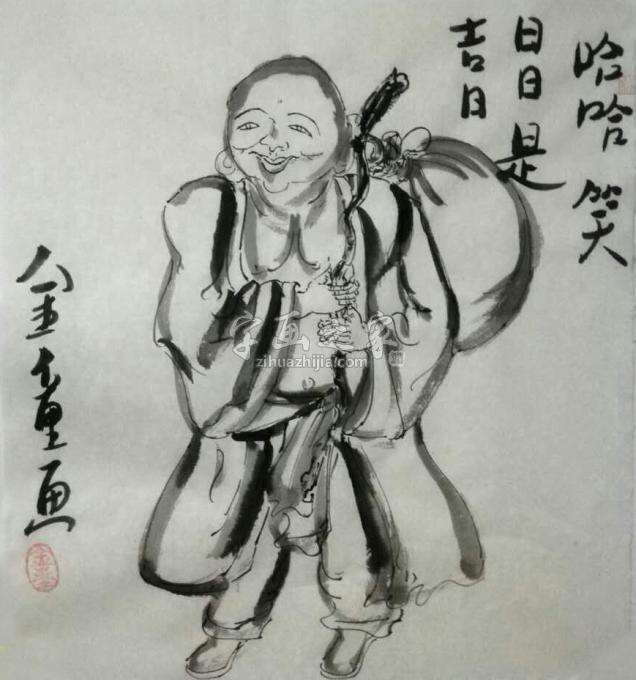 哈哈笑
日日是
吉日
金画
字画之家
zihuazhijia.com